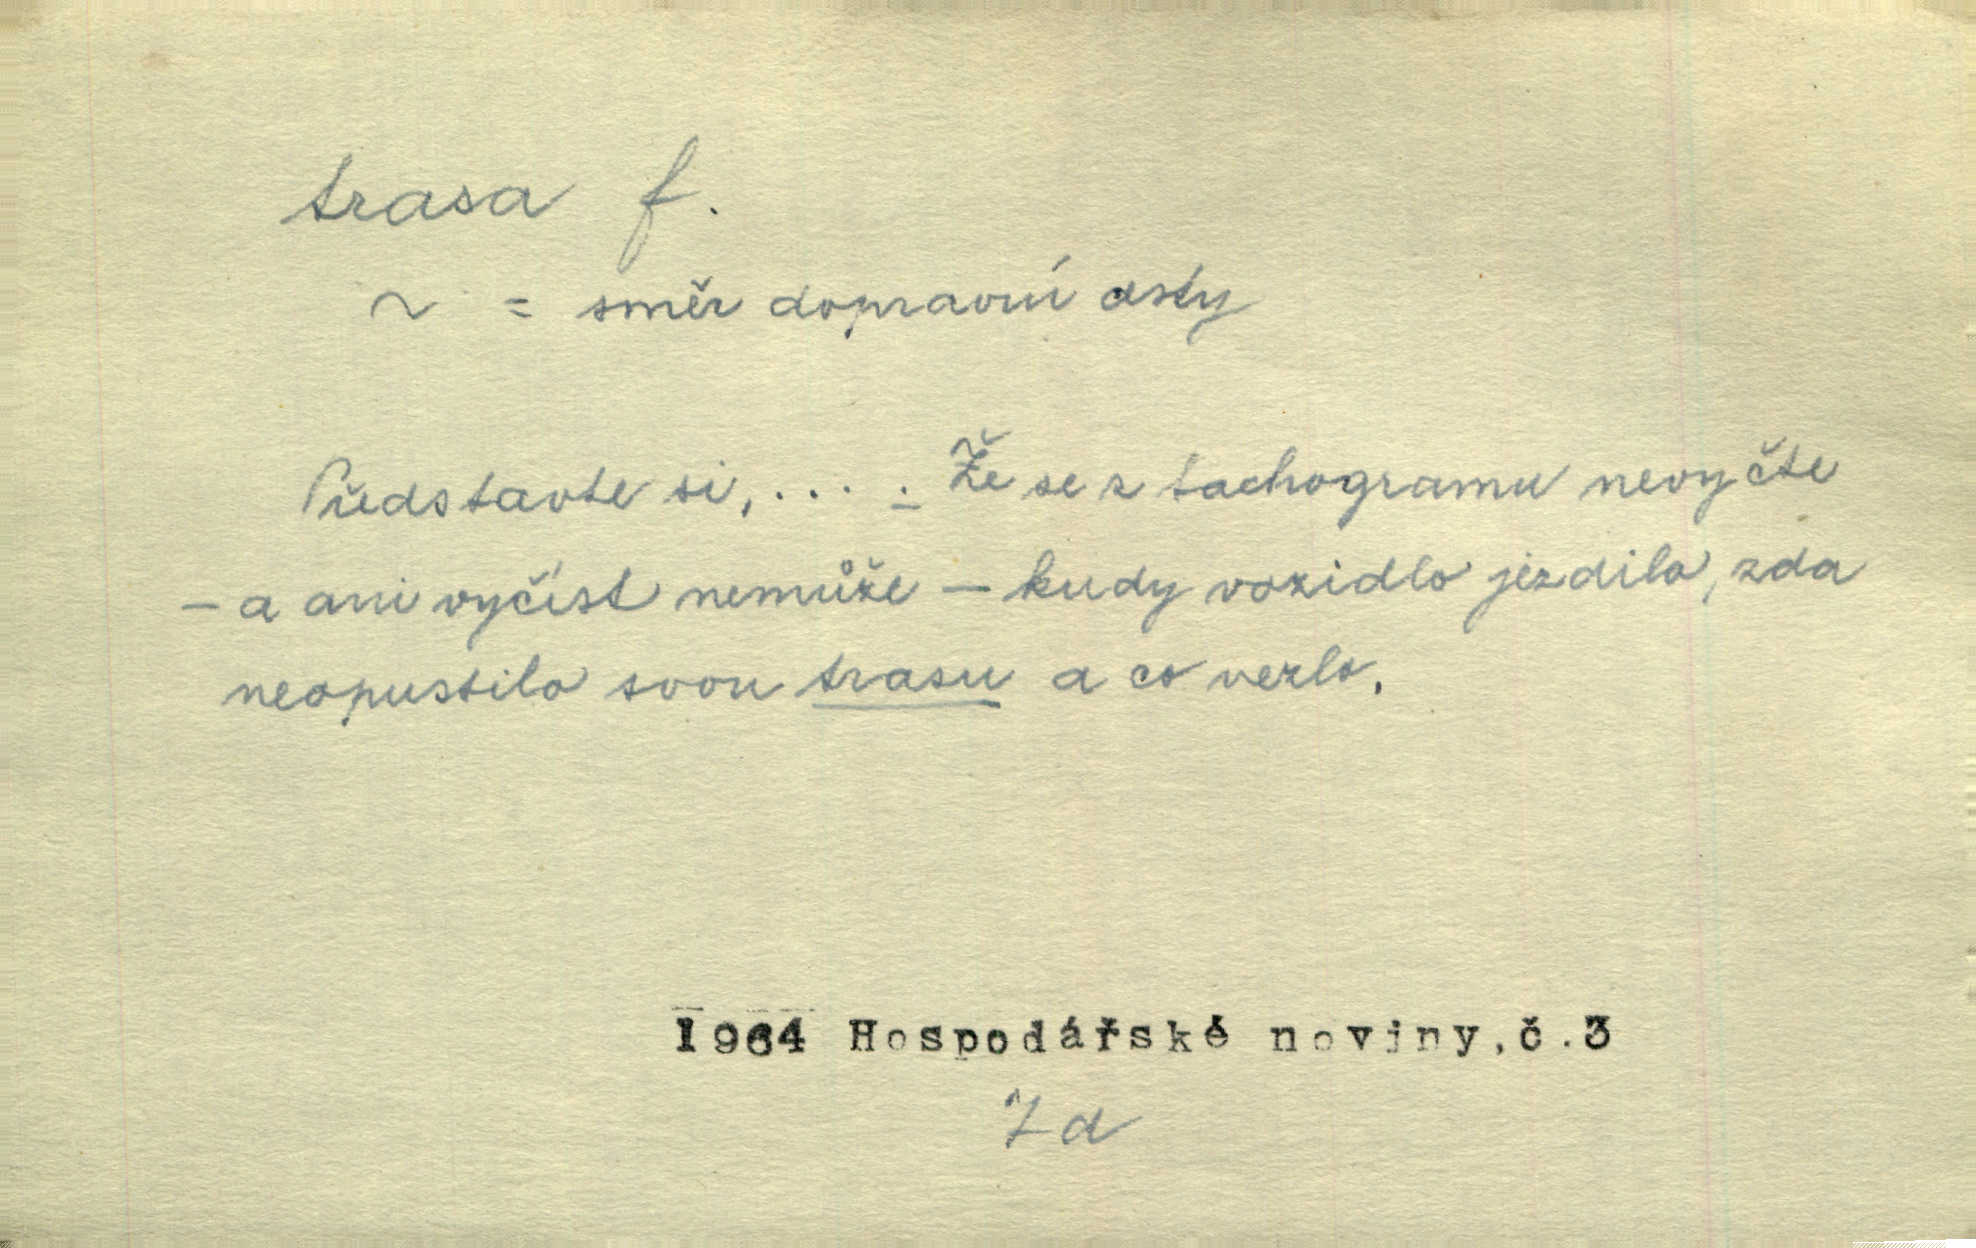 trasa f.
~ = směr dopravní cesty
Představte si, .... Že se z tachogramu nevyčte
— a ani vyčíst nemůže — kudy vozidlo jezdilo, zda
neopustilo svou trasu a co vezlo.
1964 Hospodářské noviny,č.3
Zd